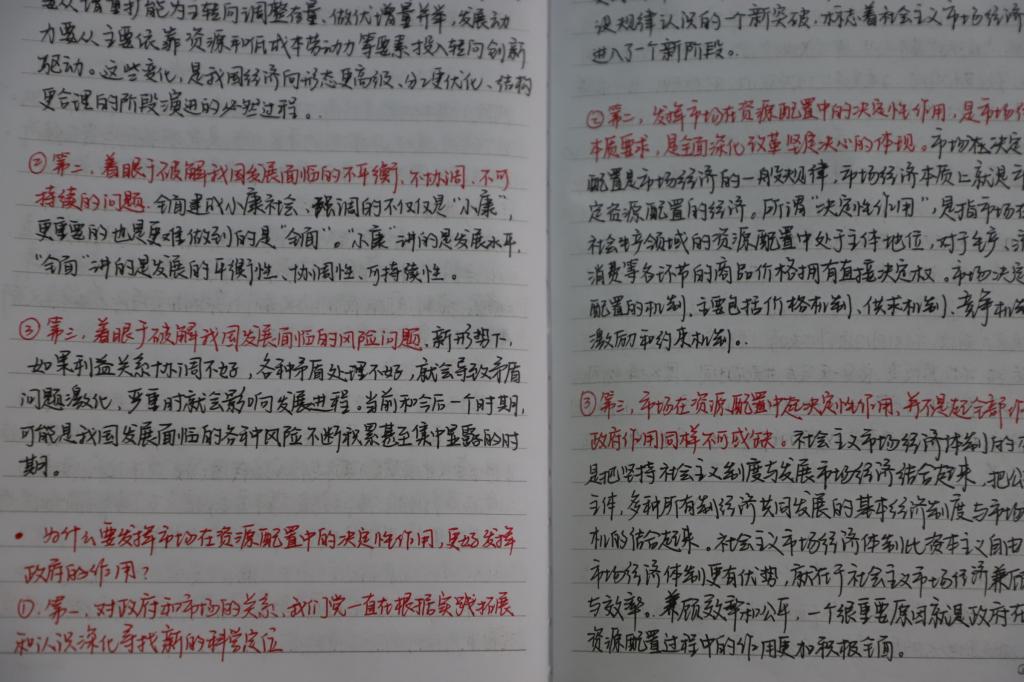 要从增量扩能为主转向调整存量、做优增量并举,发展动
力要从主要依靠资源和低成本劳动力等要素投入转向创新
驱动。这些变化,是我国经济向形态更高级、分工更优化、结构
更合理的阶段演进的必然过程。
②第二,着眼于破解我国发展面临的不平衡、不协调、不可
持续的问题.全面建成小康社会、强调的不仅仅是“小康”,
更重要的也是更难做到的是“全面”。“小康”讲的是发展水平,
“全面”讲的是发展的平衡性、协调性、可持续性。
③第三,着眼于破解我国发展面临的风险问题.新形势下,
如果利益关系协调不好,各种矛盾处理不好,就会导致矛盾
问题激化,严重时就会影响发展进程。当前和今后一个时期,
可能是我国发展面临的各种风险不断积累甚至集中显露的时
期。
• 为什么要发挥市场在资源配置中的决定性作用,更好发挥
政府的作用?
①.第一、对政府和市场的关系、我们党一直在根据实践拓展
和认识深化寻找新的科学定位
设规律认识的一个新突破,标志着社会主义市场经济
进入了一个新阶段。
②第二,发挥市场在资源配置中的决定性作用,是市场经
本质要求,是全面深化改革坚定决心的体现。市场决定
配置是市场经济的一般规律,市场经济本质上就是市
定资源配置的经济。所谓“决定性作用”,是指市场在
社会生产领域的资源配置中处于主体地位,对于生产、流
消费等各环节的商品价格拥有直接决定权。市场决定
配置的机制,主要包括价格机制、供求机制、竞争机制
激励和约束机制。
③第三,市场在资源配置中起决定性作用,并不是起全部作
政府作用同样不可或缺。社会主义市场经济体制的
是把坚持社会主义制度与发展市场经济结合起来,把公
主体,多种所有制经济共同发展的基本经济制度与市场
机的结合起来。社会主义市场经济体制比资本主义自由
市场经济体制更有优势,就在于社会主义市场经济兼顾
与效率。兼顾效率和公平,一个很重要原因就是政府在
资源配置过程中的作用更加积极全面。